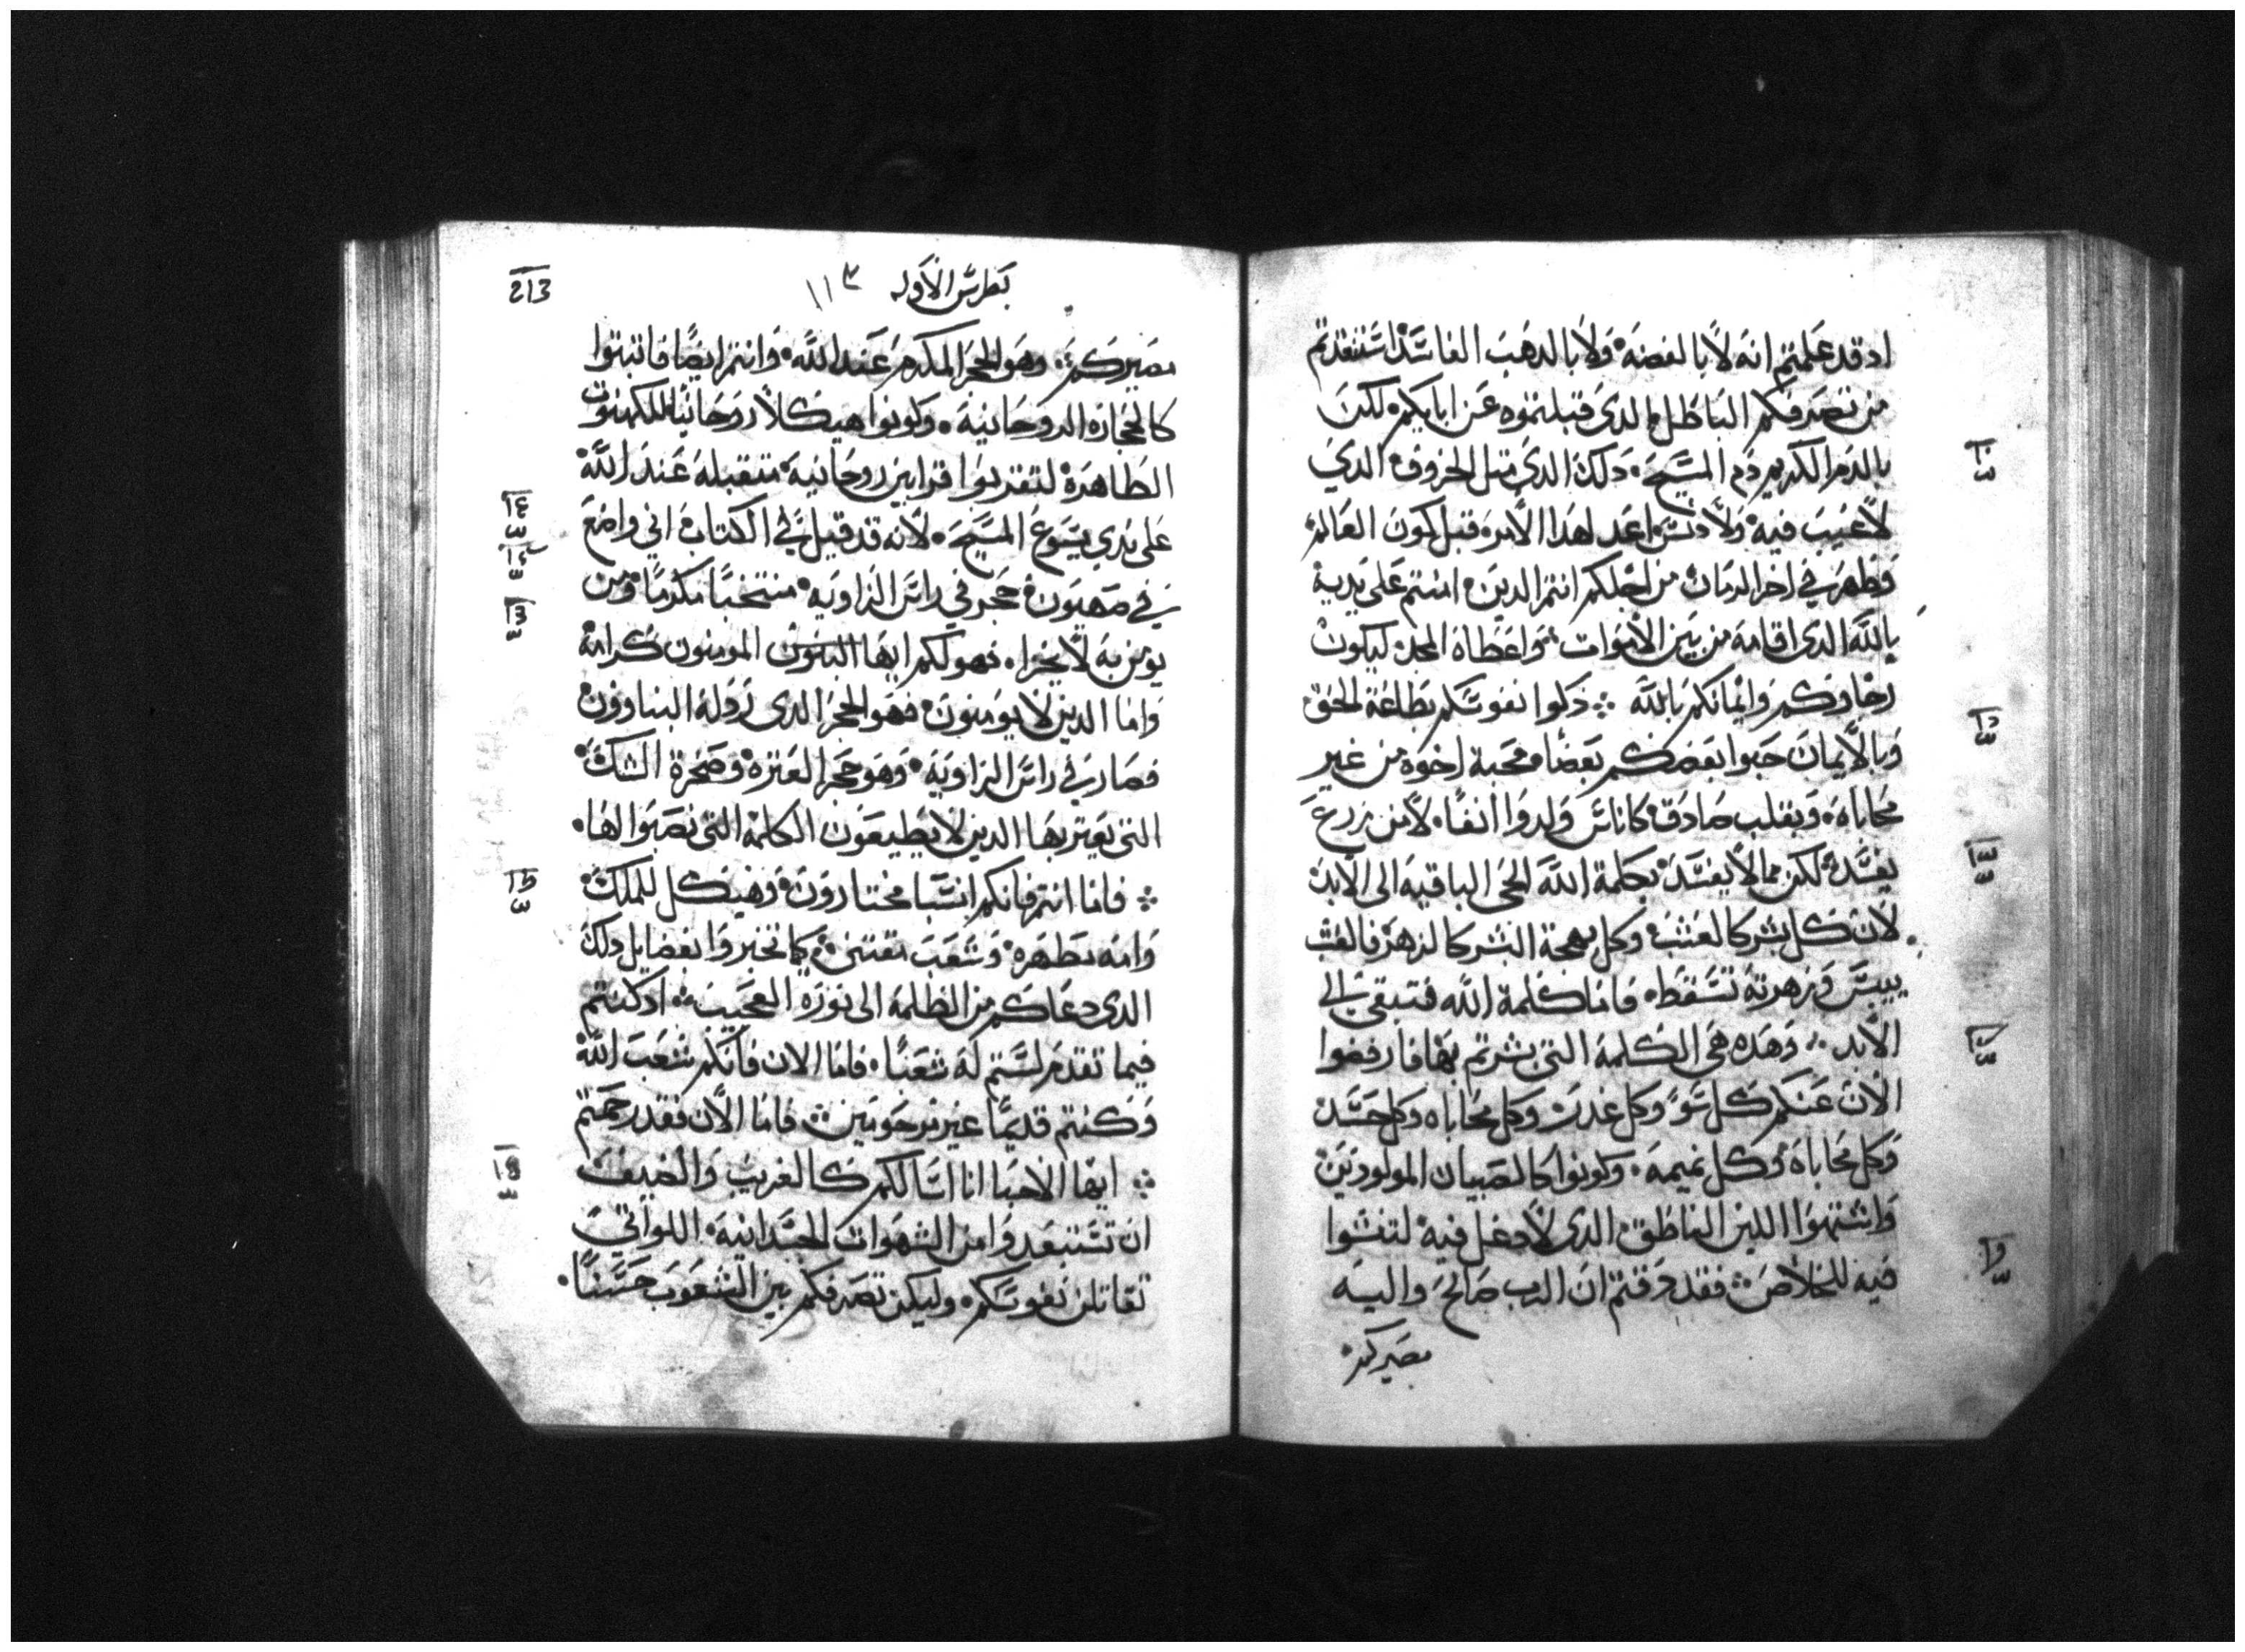 ادقد علمتم انه لا بالفضة ولا بالدهب الفاسد استنقدتم
من تصرفكم الباطل الدى قبلتموه عن ابايكم لكن
بالدم الكريم دم المسيح دلك الدى متل الخروف الدي
لاعيب فيه ولا دنس اعد لهدا الامر قبل كون العالم
وظهر في اخر الزمان من اجلكم انتم الدين امنتم على يديه
بالله الدى اقامه من بين الاموات واعطاه المجد ليكون
رجاوكم وايمانكم بالله ܀ زكوا نفوسكم بطاعة الحق
وبالايمان حبوا بعضكم بعضا محبة اخوه من غير
محاباه وبقلب صادق كاناس ولدوا انفا لا من زرع
يفسد لكن مما لا يفسد بكلمة الله الحى الباقيه الى الابد
لان كل بشر كالعشب وكل بهجة البشر كالزهر فالعشب
ييبس وزهرته تسقط فاما كلمة الله فتبقى الى
الابد وهده هى الكلمة التى بشرتم بها فارفضوا
الان عنكم كل سو وكل غدر وكل محاباه وكل حسد
وكل محاباه وكل نميمه وكونوا كالصبيان المولودين
واشتهوا اللبن الناطق الدى لا دغل فيه لتنشوا
فيه للخلاص فقد دقتم ان الرب صالح واليه
مصيركم
213
بطرس الاوله ١١٣
مصيركم وهو الحجر المكرم عند الله وانتم ايضا فاتبتوا
كالحجاره الروحانيه وكونوا هيكلا روحانيا للكهنوت
الطاهره لتقربوا قرابين روحانيه متقبله عند الله
على يدي يسوع المسيح لانه قد قيل في الكتاب اني واضع
في صهيون حجر في راس الزاويه منتخبا مكرما ومن
يومن به لا يخزا فهو لكم ايها البنون المومنون كرامه
واما الدين لا يومنون فهو الحجر الدى رذله البناوون
فصار في راس الزاويه وهو حجر العتره وصخرة الشك
التى يعتر بها الدين لا يطيعون الكلمه التى نصبوا لها
܀ فاما انتم فانكم انسبا مختارون وهيكل للملك
وامه مطهره وشعب مقتنى كيما تخبروا بفضايل دلك
الدى دعاكم من الظلمه الى نوره العجيب ادكنتم
فيما تقدم لستم له شعبا فاما الان فانكم شعب الله
وكنتم قديما غير مرحومين فاما الان فقد رحمتم
܀ ايها الاحبا انا اسالكم كالغريب والضيف
ان تستبعدوا من الشهوات الجسدانيه اللواتي
تقاتلن نفوسكم وليكن تصرفكم بين الشعوب حسنا